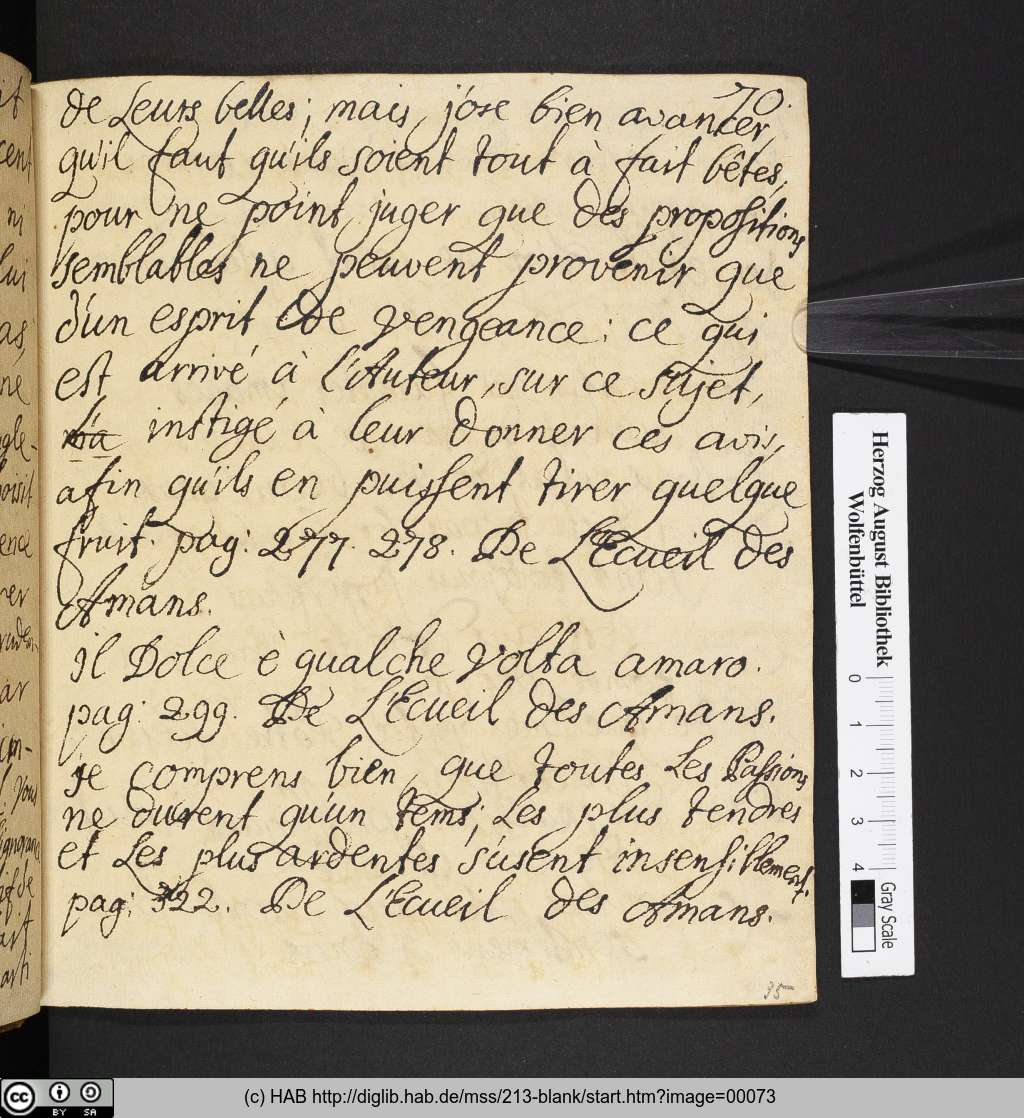 70.
de Leurs belles; mais, j'ose bien avancer,
qu'il faut qu'ils soient tout à fait bêtes,
pour ne point juger que des propositions
semblables ne peuvent provenir que
d'un esprit de vengeance: ce qui
est arrivé à L'Auteur, sur ce sujet,
l'a instigé à leur donner ces avis,
afin qu'ils en puissent tirer quelque
fruit. pag: 277. 278. De L'Ecueil des
Amans.
Il Dolce è qualche volta amaro.
pag: 299. De L'Ecueil des Amans.
je comprens bien, que toutes Les Passions
ne durent qu'un tems; Les plus tendres
et Les plus ardentes s'usent insensiblement.
pag: 322. De L'Ecueil des Amans.
35
Herzog August Bibliothek
Wolfenbüttel
0 1 2 3 4
Gray Scale
cc BY SA
(c) HAB http://diglib.hab.de/mss/213-blank/start.htm?image=00073